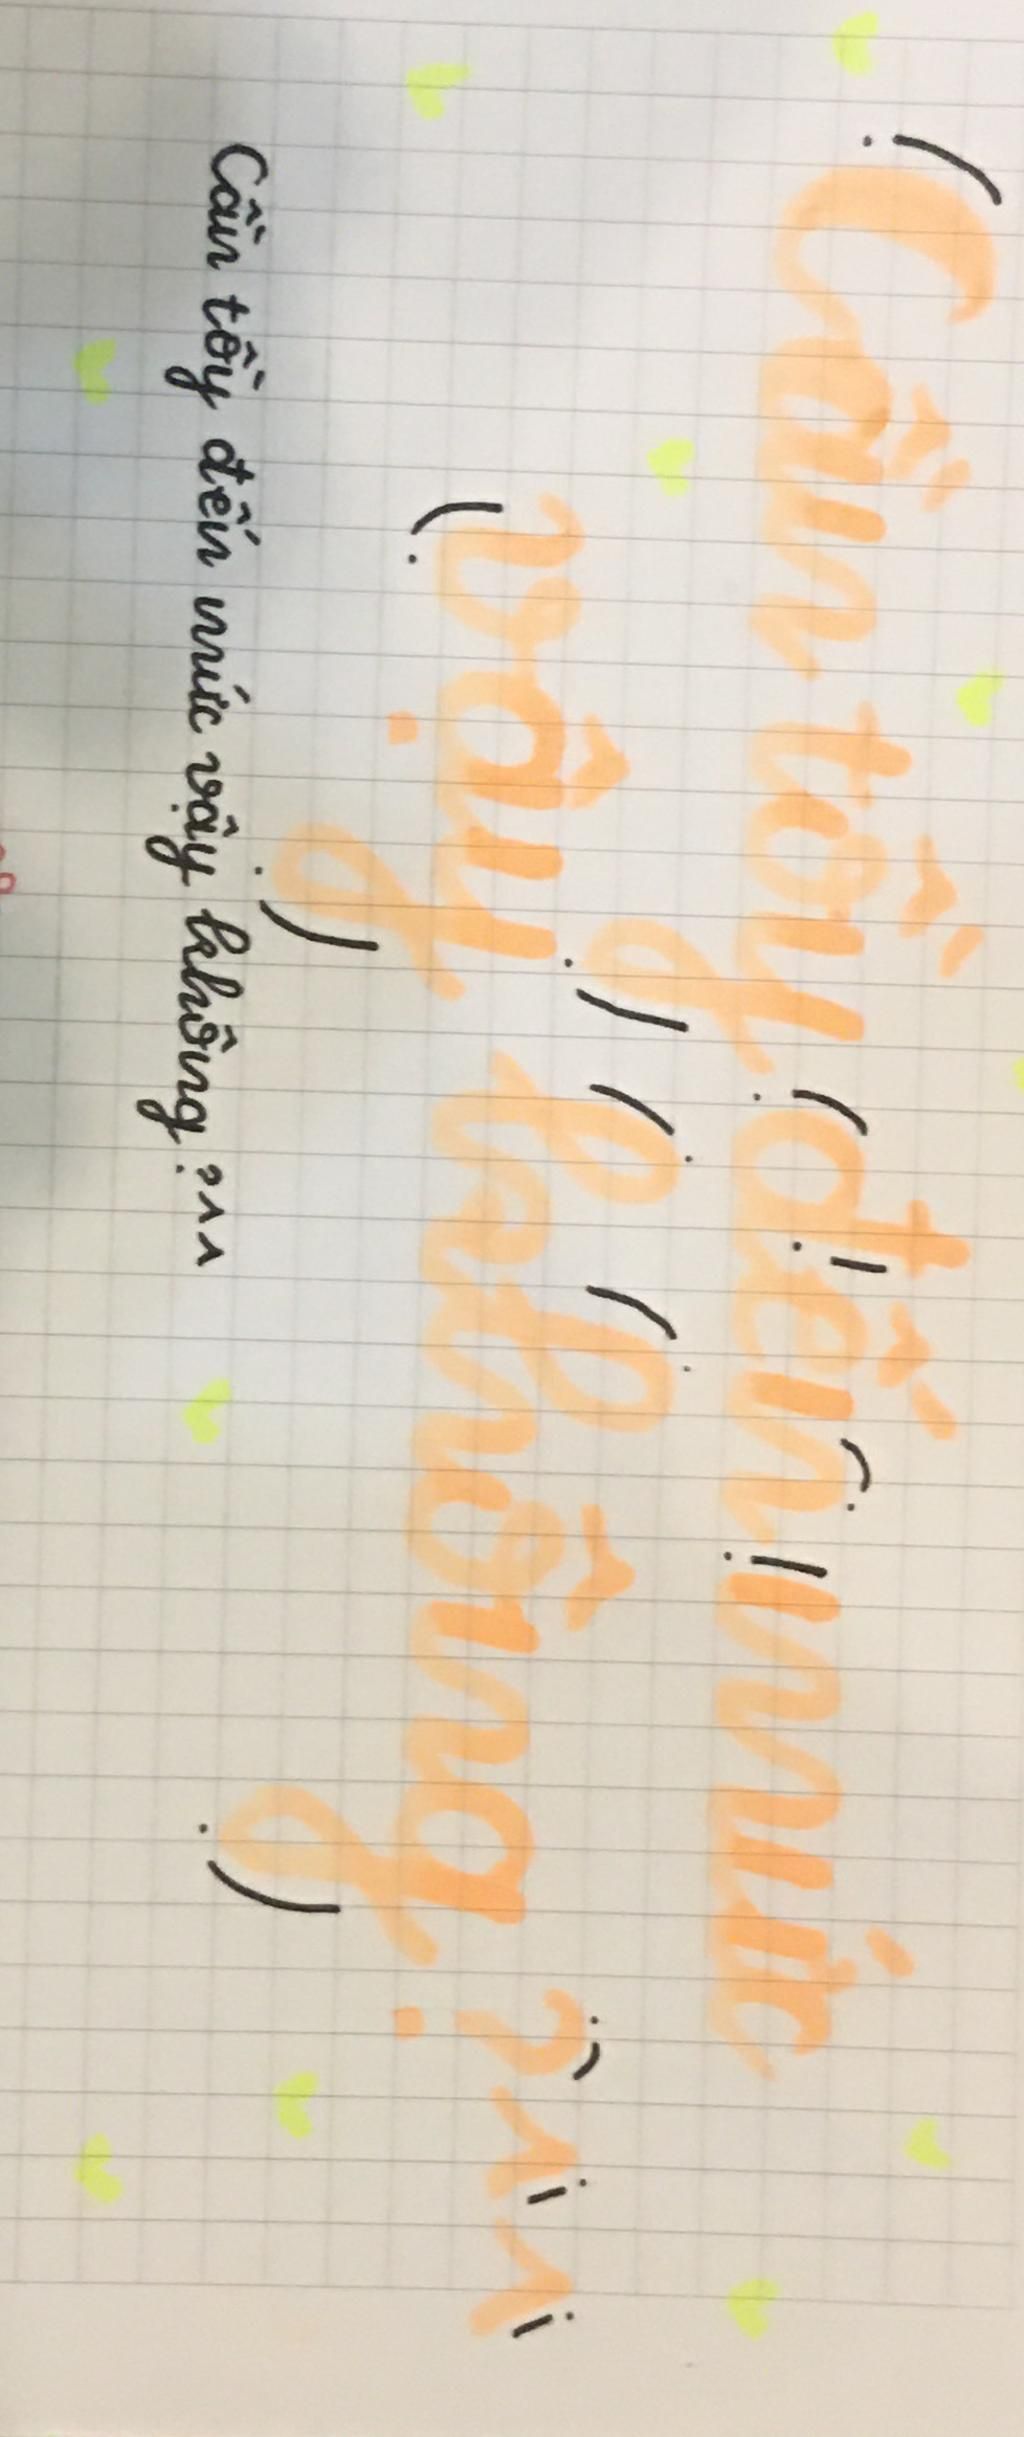 Cần tồy đến mức
vậy không ? ^^
Cần tồy đến mức vậy không ? ^^